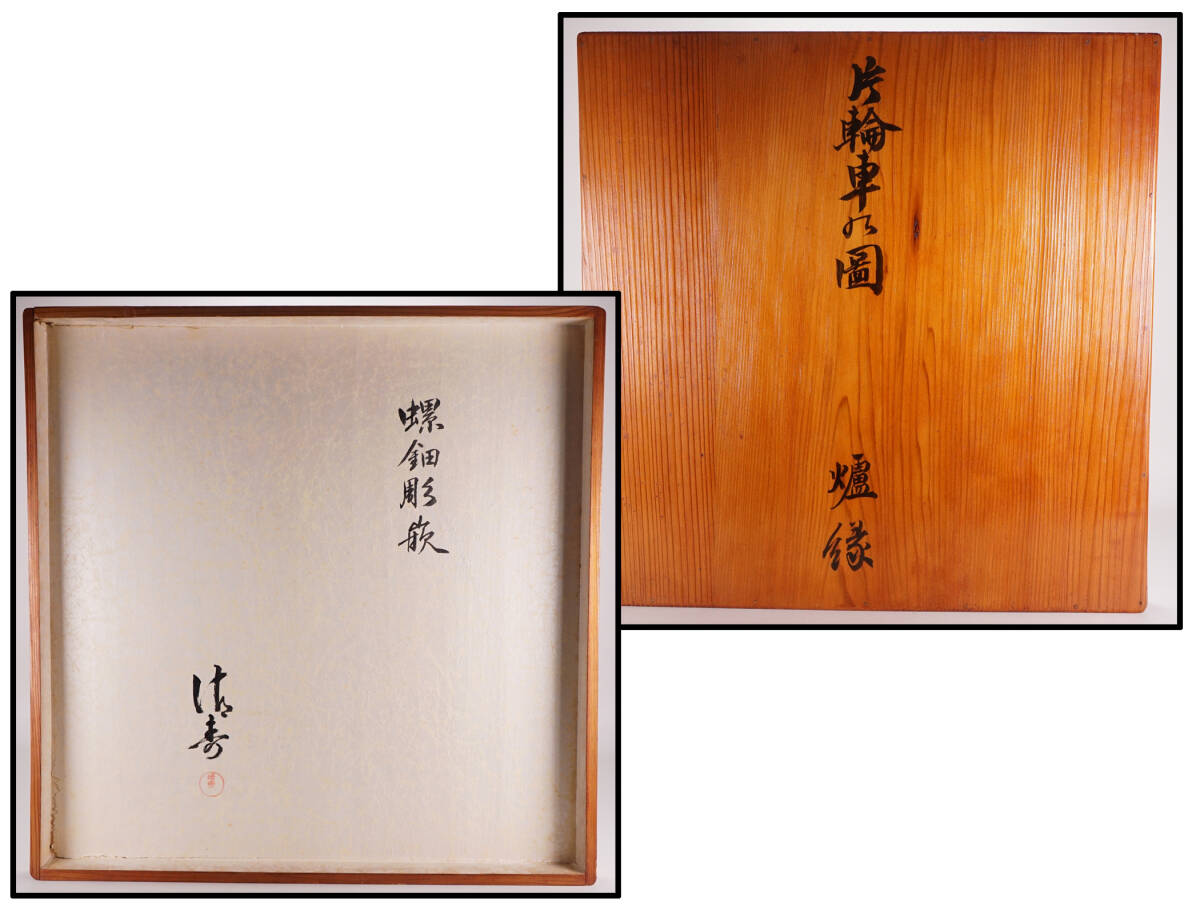 片輪車の圖
爐縁
螺鈿彫嵌
清寿